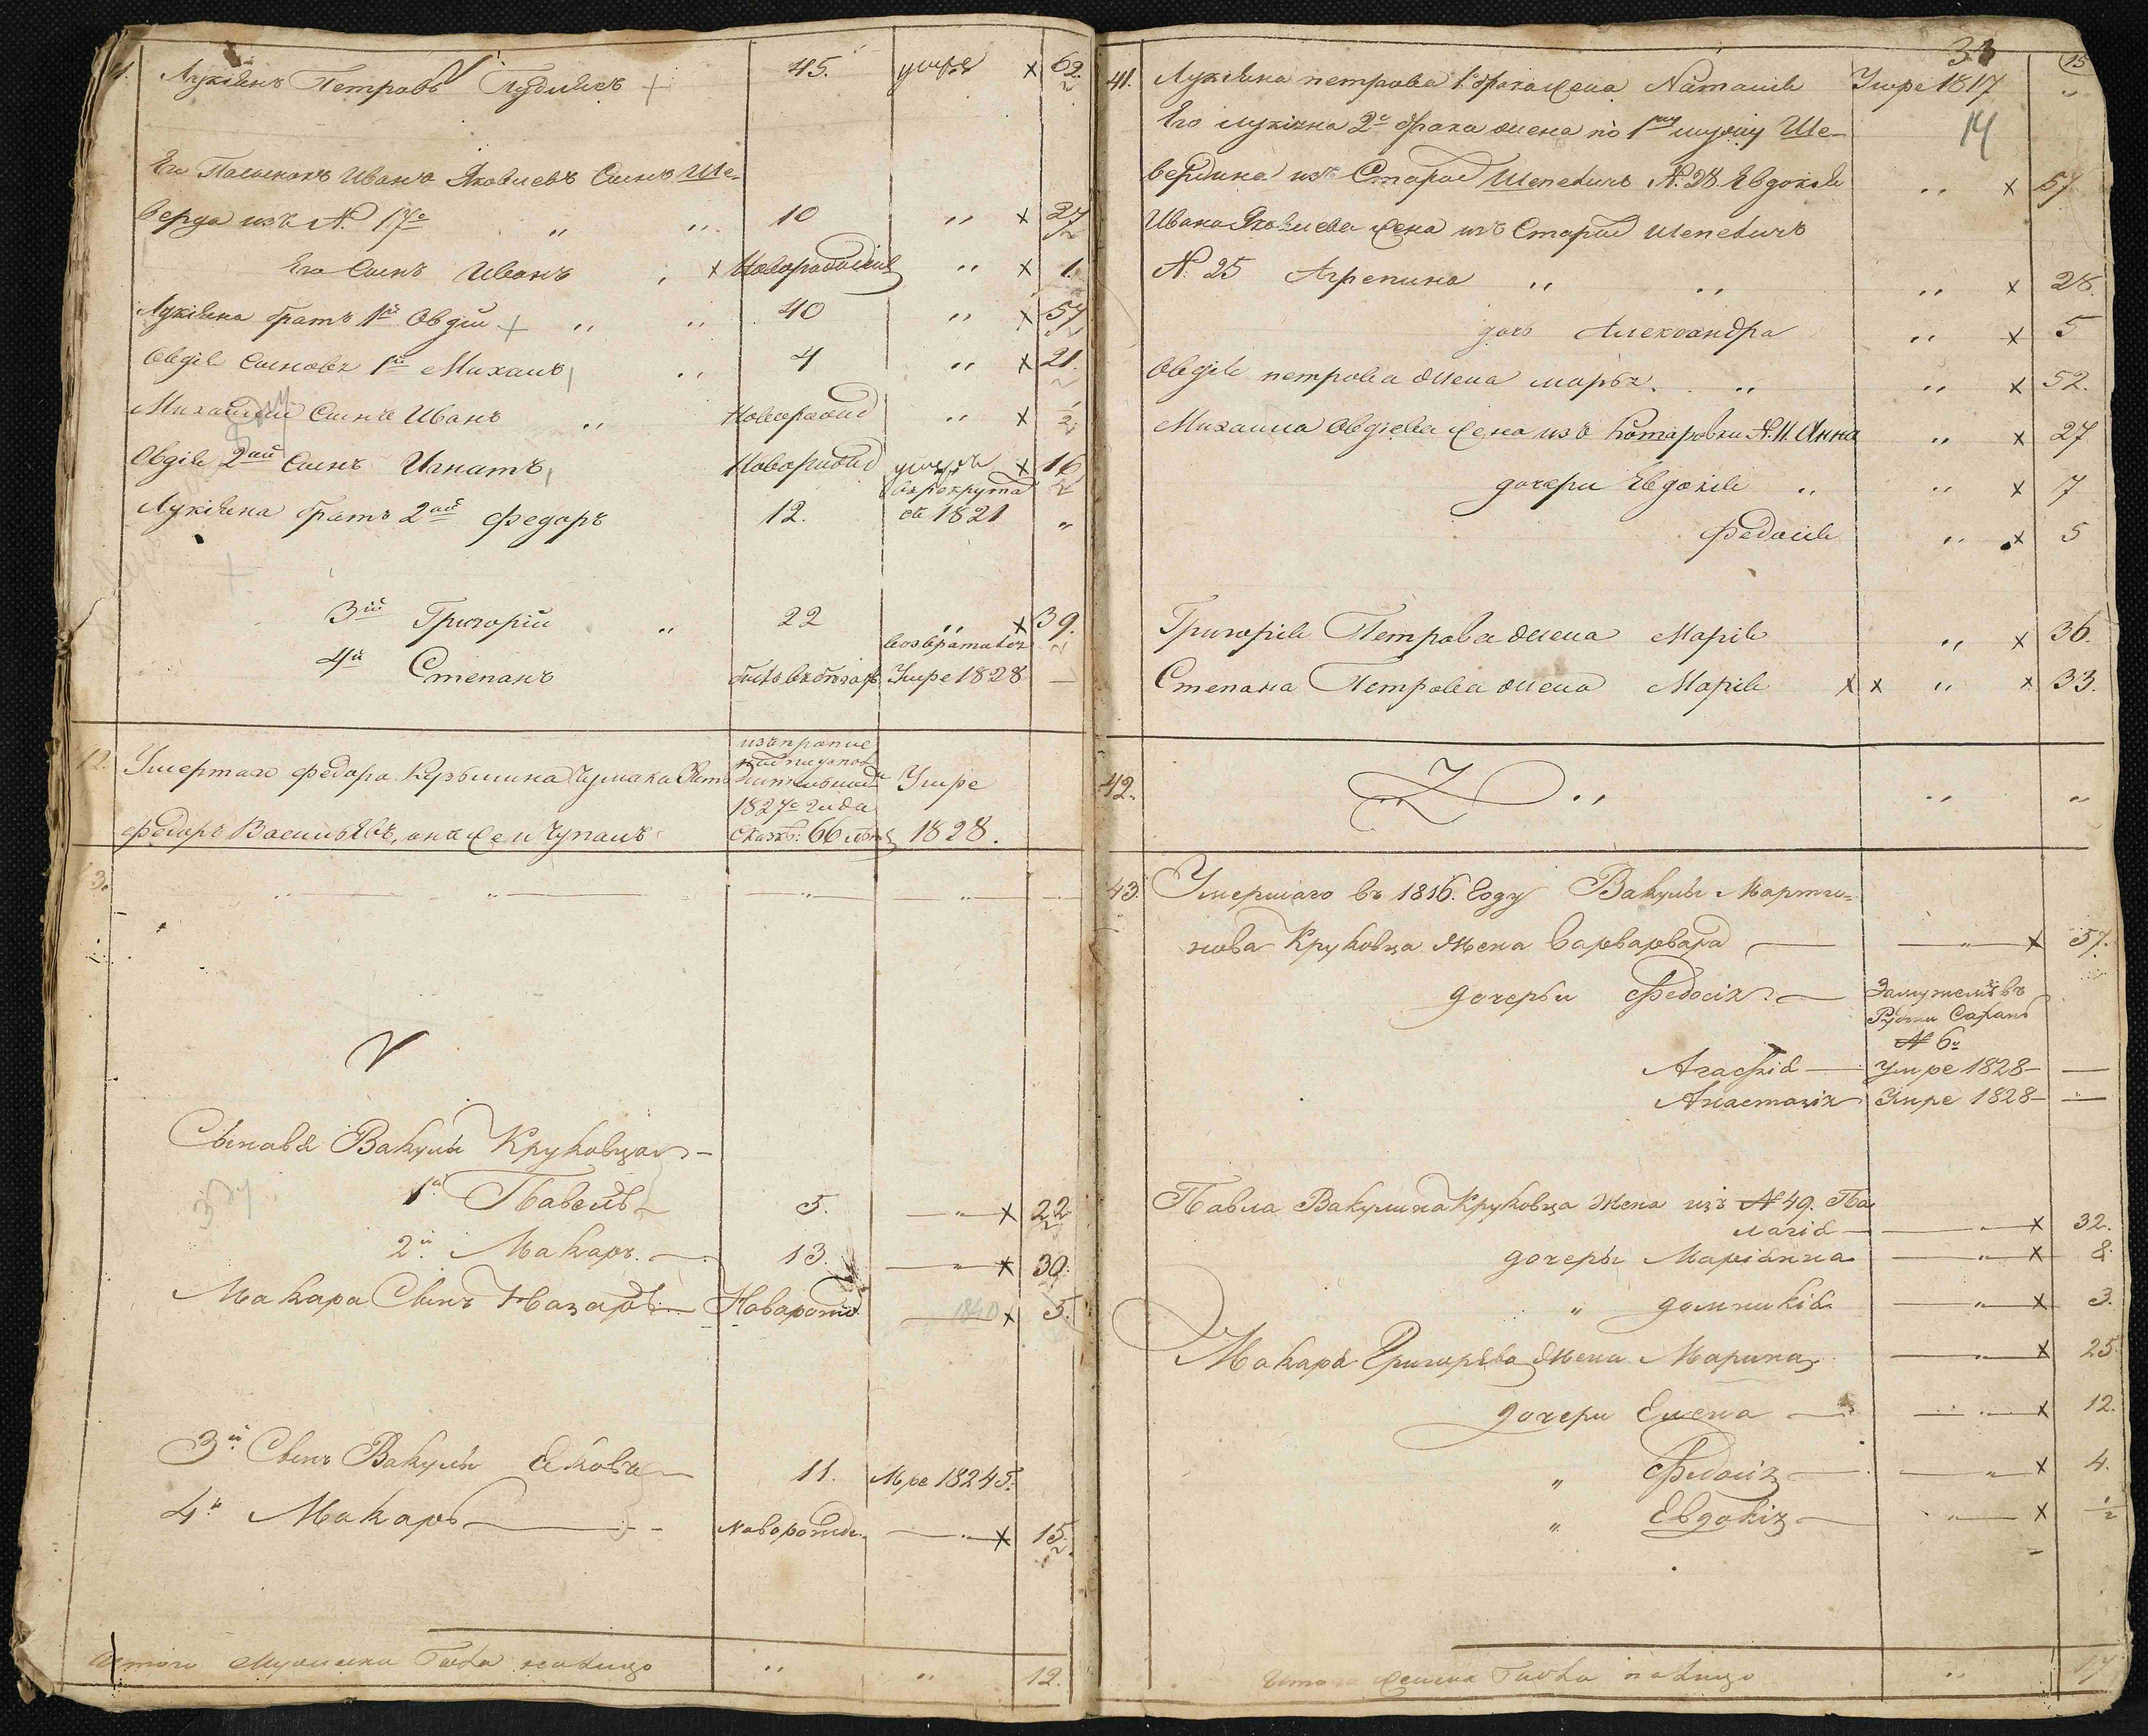 Лукіянъ Петровъ 45. умре 62.
Его Пасынокъ Иванъ Яковлевъ Сынъ Ше-
верда изъ N. 17го 10 " 27
Его Сынъ Иванъ Новорожденъ " 1.
Лукіяна братъ 1й Овдій 40 " 57
Овдія Сыновья 1й Михаилъ 4 " 21.
Михаила Сынъ Иванъ Новорожд " 1/2
Овдія 2ой Сынъ Игнатъ Новорожд 16
Лукіяна братъ 2ой Федоръ 12. въ рекрута въ 1821 "
3ій Григорій " 22 " 39.
возвратился
4й Степанъ Умре 1828 —
12. Умершаго Федора Кузьмина Чумака
1827го года Умре
Федоръ Васильевъ, онъ же и Чупаш 66 1828.
3.
Сыновья Вакулы Круковца
1й Павелъ 5. — " — 22
2й Макаръ 13. — " — 30.
Макара Сынъ Назаръ Наворожд. 1840 5.
3й Сынъ Вакулы Яковъ 11. Мре 1824
4й Макаръ Наворожде. — " — 15
Итого Мужеска Пола налицо " " 12.
33 15
41. Лукіяна петрова 1го брака жена Наталія Умре 1817 "
Его Лукіяна 2го брака жена по 1му мужу Ше- 14
вердина изъ Старой Шепетихъ N. 28 Евдокія " 57
Ивана Яковлева жена изъ Старой Шепетихъ
N. 25 Агрепина " " " 28.
дочь Александра " 5
Овдія петрова жена марья. " " 52.
Михаила Овдіева жена изъ Комаровки N. 11. Анна " 27
дочери Евдокія " " 7
Федосія " 5
Григорія Петрова жена Марія " 36.
Степана Петрова жена Марія " 33.
42. " " "
43. Умершаго въ 1816. Году Вакулы Марти-
нова Круковца жена Варварвара — " — 57.
дочерьи Федосія — Замужемъ въ
N 6й
Агафія — Умре 1828 — —
Анастазія Умре 1828 — —
Павла Вакулина Круковца жена изъ N 49. Па
лагія — " — 32.
дочеры Маріанна — " — 8.
" домникія — " — 3.
Макара Григорьева жена Марина — " — 25
дочери Елена — " — 12.
" Федосія — " — 4.
" Евдокія — " — 1/2
Итого женска Пола налицо " 17